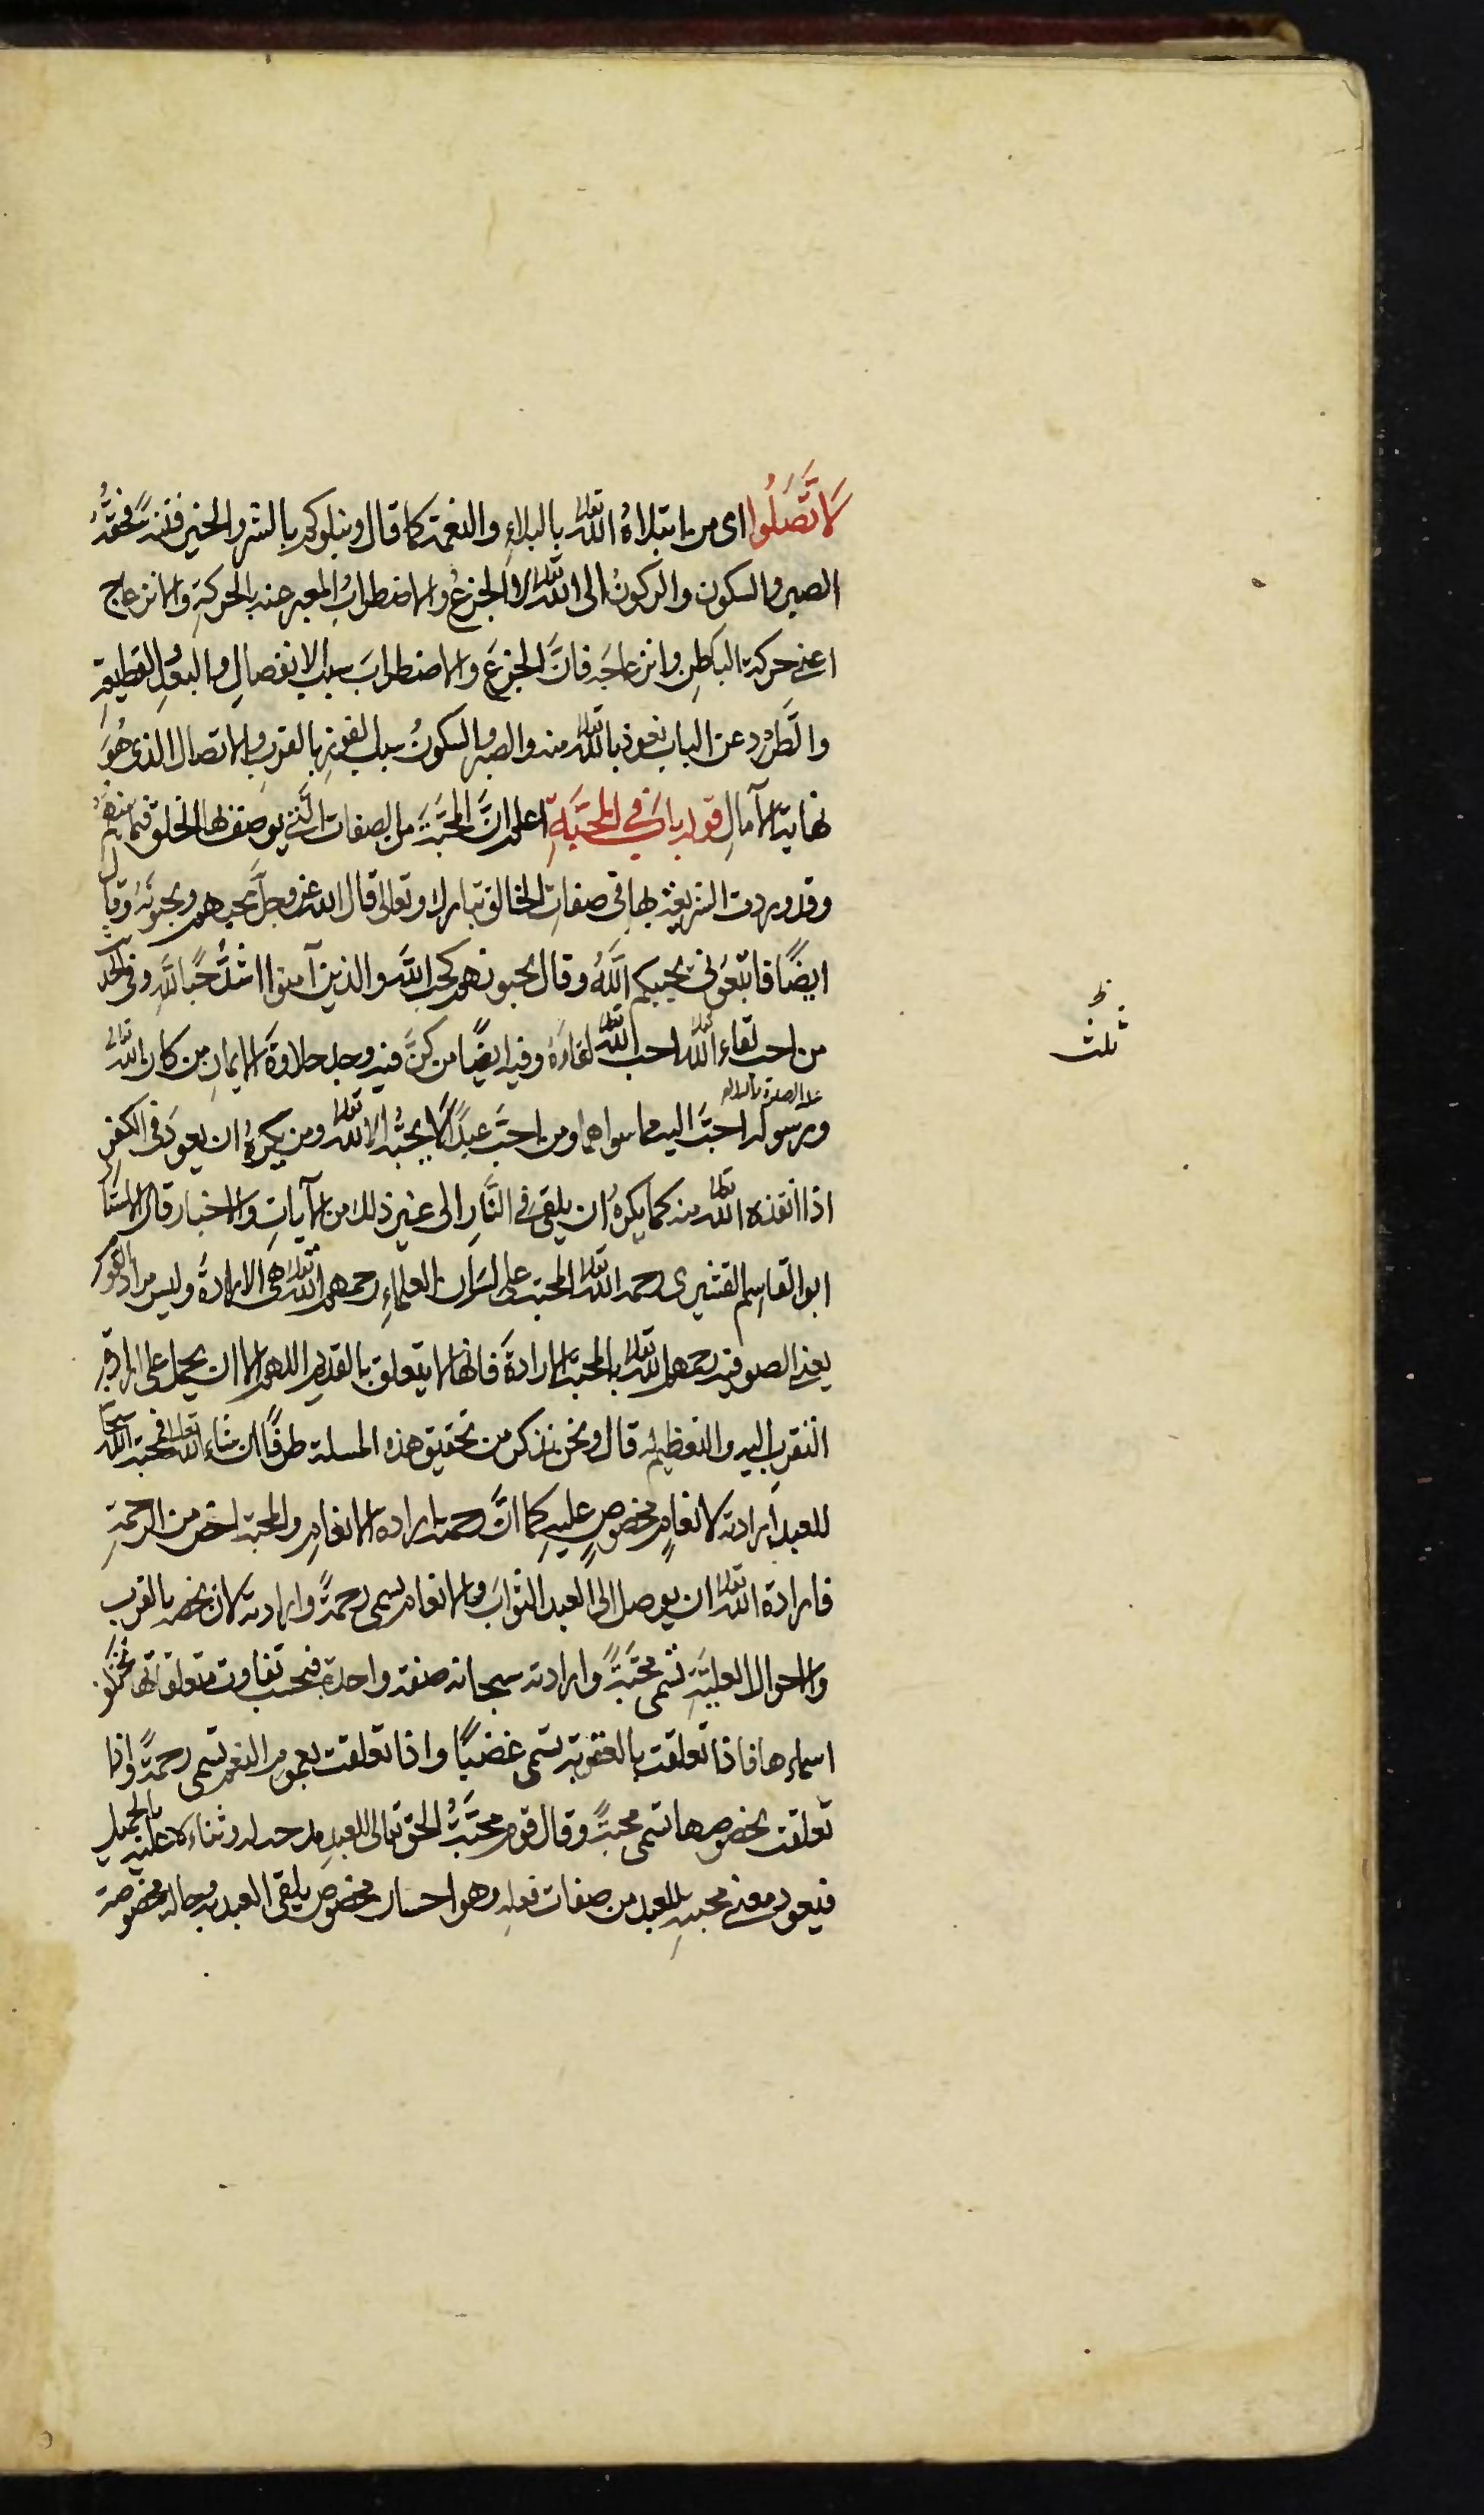 لَاتَّصَلُوا اى من ابتلاهُ الله تعالى بالبلاءِ والنعمة كما قال ونبلوكم بالشر والخير فتنةً فحقُّهُ
الصبر والسكون والركونُ الى الله تعالى لا الجزعُ والاضطرابُ المعبر عنه بالحركةِ والانزعاج
اعنى حركة الباطِن وانزعاجَه فانَّ الجزعَ والاضطرابَ سبب الانفصالِ والبعدِ والقطيعةِ
والطَّرْد عن الباب نعوذ بالله تعالى منه والصبر والسكونُ سبب الفوزِ بالقربِ والاتصال الذى هُوَ
نهاية الآمالِ قوله بابٌ فى المحَبَّةِ اعلم انَّ المحبَّةَ من الصفات الَّتى يوصف بها الخلق فيما بينهم
وقد وردت الشريعة بها فى صفاتِ الخالق تبارك وتعالى قال الله عز وجلَّ يحبهم ويحبونَهُ وقال
ايضًا فاتبعُونى يحببكم اللَّهُ وقال يحبونهم كحبِ اللَّهِ والذين آمنوا اشدُّ حُبًا للَّهِ وفى الحديث
من احب لقاء الله تعالى احب الله تعالى لقاءَهُ وفيه ايضًا من كنَّ فيه وجد حلاوةَ الايمانِ من كان الله تعالى
ورسوله عليه الصلوة والسلام احبَّ اليه مما سواهما ومن احبَّ عبدًا لا يحبُّه الا لله تعالى ومن يكرهُ ان يعودَ فى الكفرِ
اذا انقذه الله تعالى منه كما يكرهُ ان يلقى فى النَّارِ الى غير ذلك من الآياتِ والاخبار قال الاستاد
ابو القاسِم القشيرى رحمه الله تعالى المحبة على لسَانِ العلماءِ رحمهم الله تعالى هى الارادة وليس مراد القوم
يعنى الصوفية رحمهم الله تعالى بالمحبة الارادةَ فانها لا يتعلق بالقديم اللهم الا ان يحمل على ارادةِ
التقرب اليه والتعظيم له قال ونحن نذكر من تحقيق هذه المسلة طرفًا ان شاء الله تعالى فمحبة الله سبحانه
للعبد ارادته لانعامٍ مخصوصٍ عليه كما انَّ رحمته ارادة الانعامِ والمحبة اخص من الرحمةِ
فارادة الله تعالى ان يوصل الى العبد الثوابَ والانعام تسمى رحمةً وارادته لان يخصه بالقرب
والاحوال العليَّةِ تسمى محَبَّةً وارادته سبحانه صفة واحدة فبحسب تفاوت متعلقاتها تختلف
اسماءها فاذا تعلقت بالعقوبة تسمى غضبًا واذا تعلقت بعموم النعم تسمى رحمةً واذا
تعلقت بخصوصها تسمى محبةً وقال قوم محبَّةُ الحق تعالى للعبدِ مدحه له وثناءه عليه بالجميل
فيعود معنى محبته للعبد من صفات فعله وهو احسان مخصوص يلقى العبد به وحالة مخصوصة
ثلث